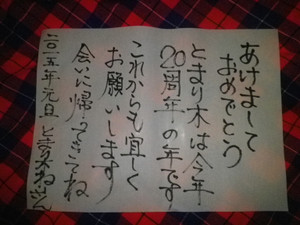 あけまして
おめでとう
とまり木は今年
20周年の年です
これからも宜しく
お願いします
会いに帰ってきてね
二〇一五年 元旦